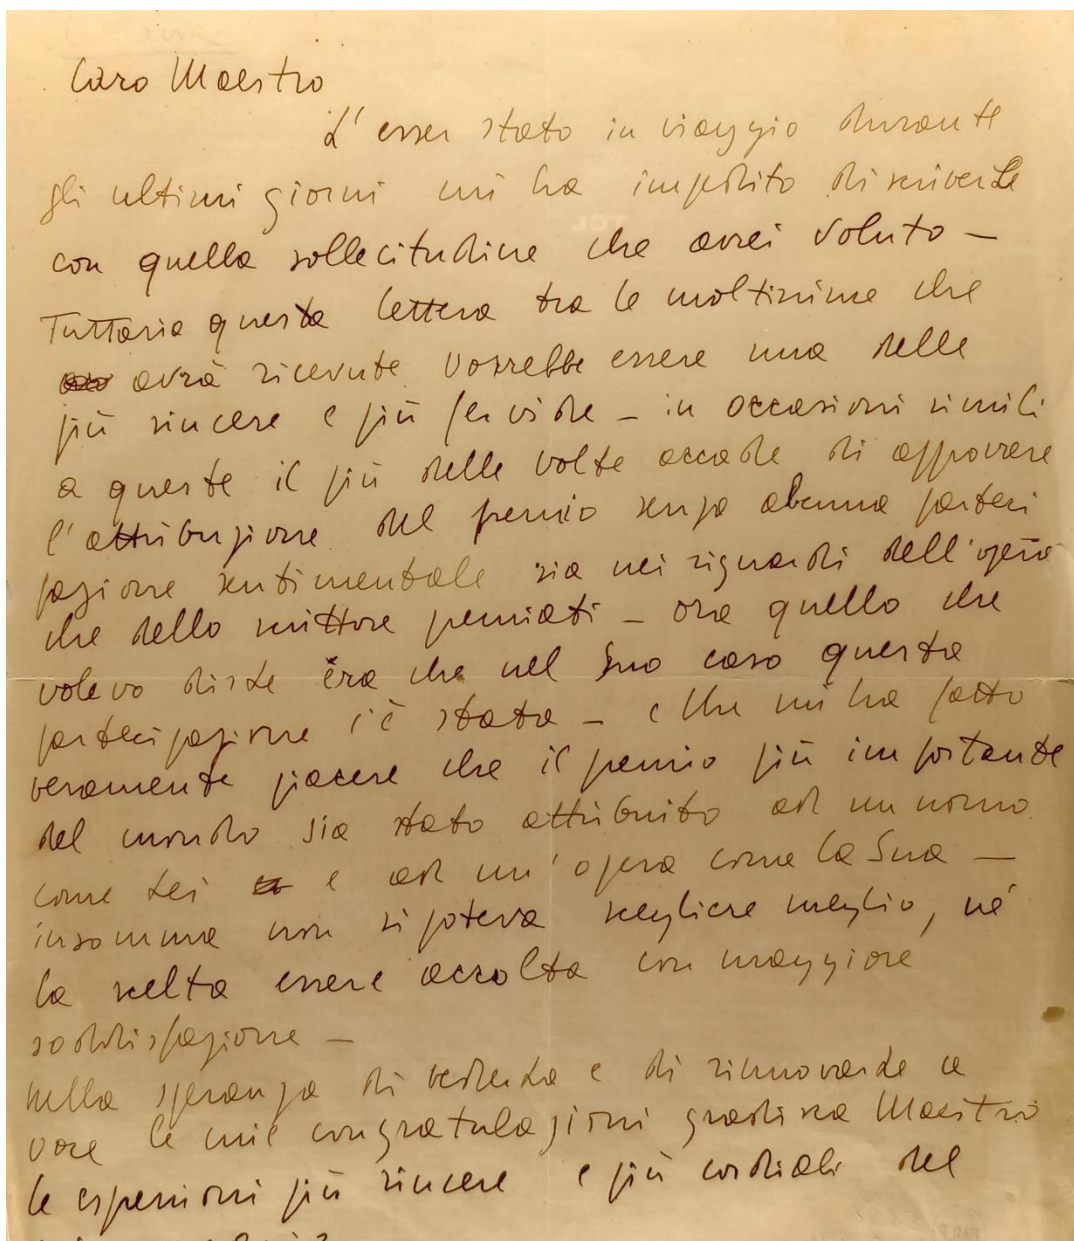 Caro Maestro
L'esser stato in viaggio durante
gli ultimi giorni mi ha impedito di scriverLe
con quella sollecitudine che avrei voluto –
Tuttavia questa lettera tra le moltissime che
avrà ricevute vorrebbe essere una delle
più sincere e più fervide – in occasioni simili
a queste il più delle volte accade di approvare
l'attribuzione del premio senza alcuna parteci
pazione sentimentale sia nei riguardi dell'opera
che dello scrittore premiati – ora quello che
volevo dirLe era che nel Suo caso questa
partecipazione c'è stata – e che mi ha fatto
veramente piacere che il premio più importante
del mondo sia stato attribuito ad un uomo
come Lei e ad un'opera come la Sua –
insomma non si poteva scegliere meglio, né
la scelta essere accolta con maggiore
soddisfazione –
nella speranza di vederLa e di rinnovarLe a
voce le mie congratulazioni gradisca Maestro
le espressioni più sincere e più cordiali del